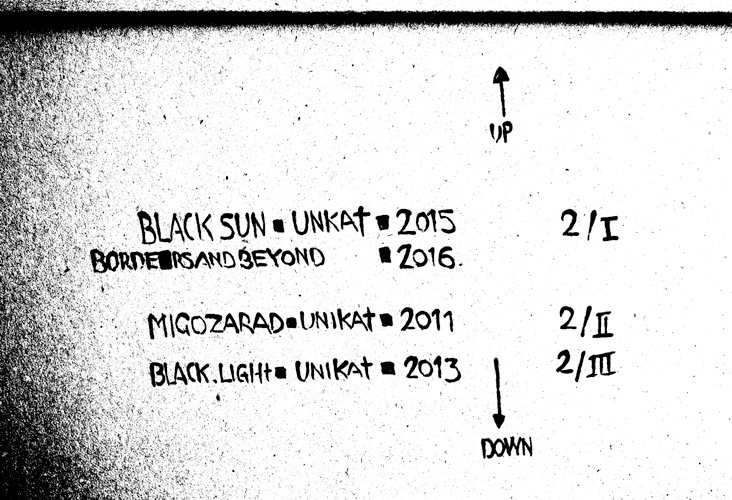 UP
BLACK SUN ▪ UNKAT ▪ 2015 2/I
BORDERSANDBEYOND ▪ 2016.
MIGOZARAD ▪ UNIKAT ▪ 2011 2/II
BLACK.LIGHT ▪ UNIKAT ▪ 2013 2/III
DOWN